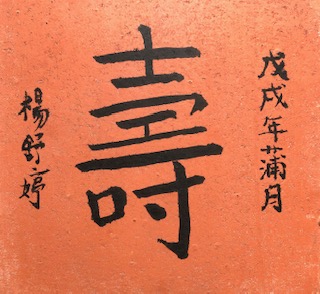 戊戌年蒲月
壽
楊野婷